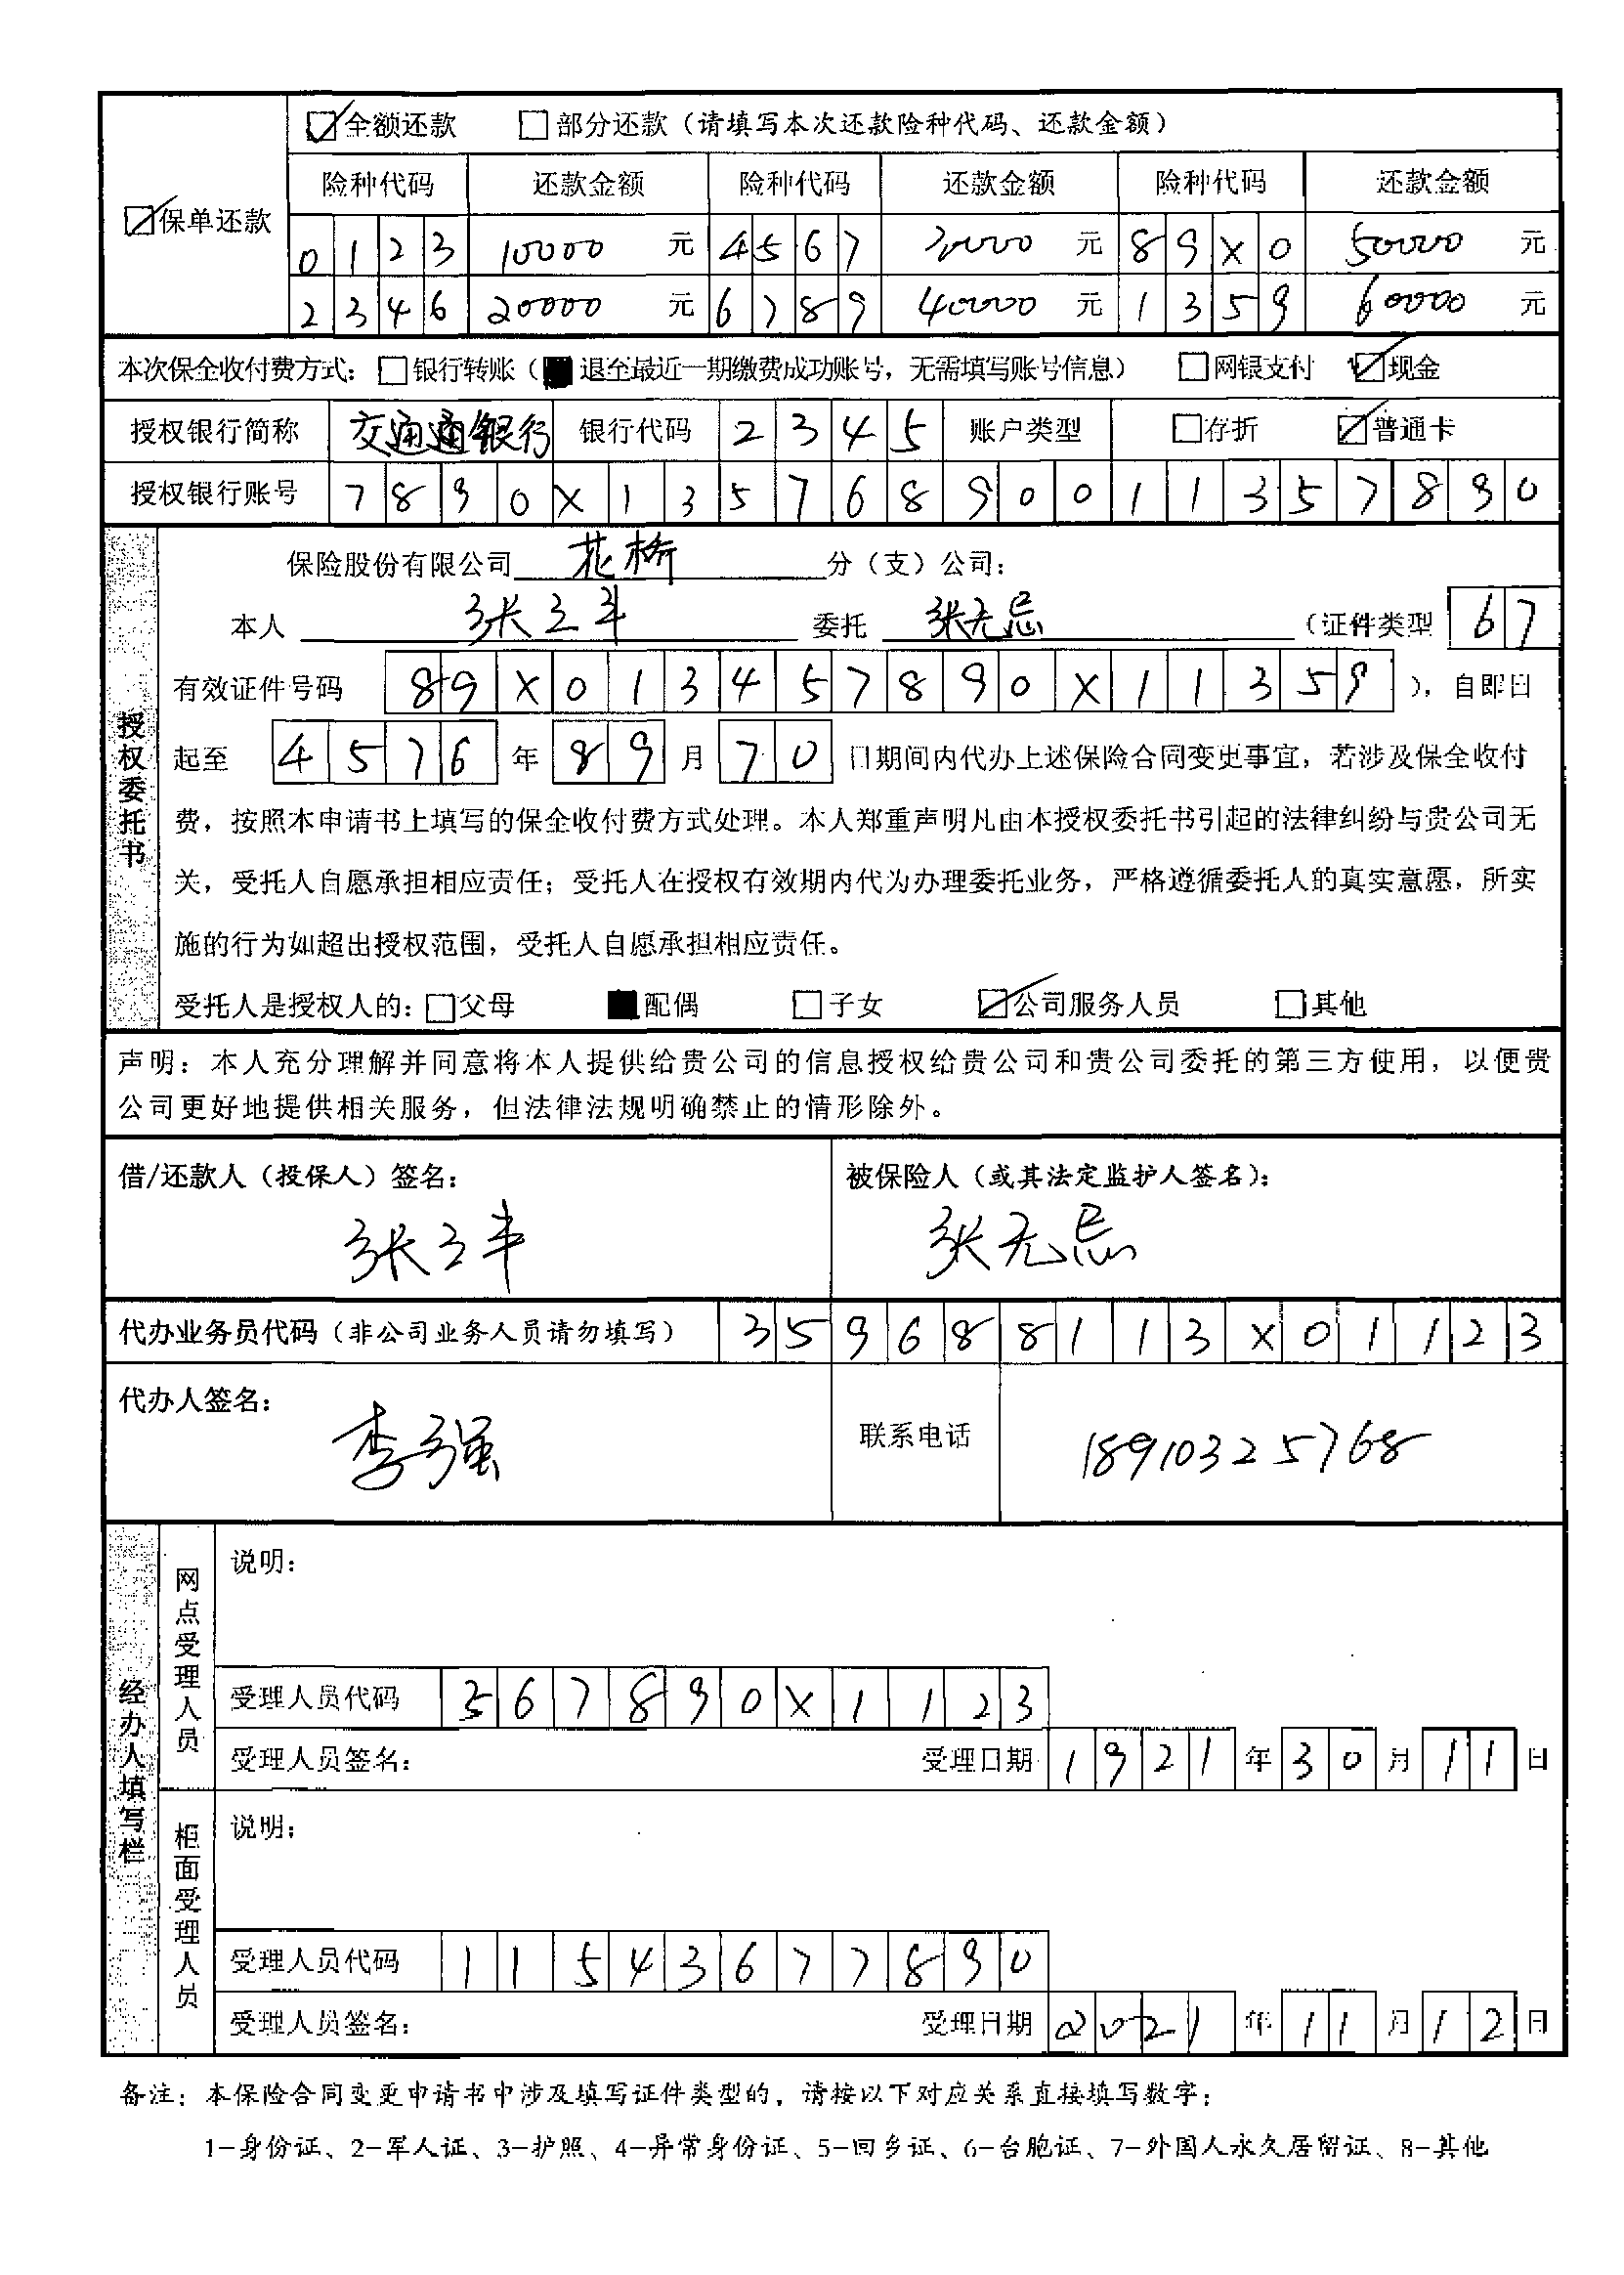 ☑全额还款 □部分还款（请填写本次还款险种代码、还款金额）
险种代码 还款金额 险种代码 还款金额 险种代码 还款金额
☑保单还款
0123 10000 元 4567 20000 元 89X0 50000 元
2346 20000 元 6789 40000 元 1359 60000 元
本次保全收付费方式：□银行转账（■退至最近一期缴费成功账号，无需填写账号信息） □网银支付 ☑现金
授权银行简称 交通通银行 银行代码 2345 账户类型 □存折 ☑普通卡
授权银行账号 7890X13576890011357890
授权委托书
保险股份有限公司 花桥 分（支）公司：
本人 张三丰 委托 张无忌 （证件类型 67
有效证件号码 89X013457890X11359 ），自即日
起至 4576 年 89 月 70 日期间内代办上述保险合同变更事宜，若涉及保全收付
费，按照本申请书上填写的保全收付费方式处理。本人郑重声明凡由本授权委托书引起的法律纠纷与贵公司无
关，受托人自愿承担相应责任；受托人在授权有效期内代为办理委托业务，严格遵循委托人的真实意愿，所实
施的行为如超出授权范围，受托人自愿承担相应责任。
受托人是授权人的：□父母 ■配偶 □子女 ☑公司服务人员 □其他
声明：本人充分理解并同意将本人提供给贵公司的信息授权给贵公司和贵公司委托的第三方使用，以便贵
公司更好地提供相关服务，但法律法规明确禁止的情形除外。
借/还款人（投保人）签名： 被保险人（或其法定监护人签名）：
张三丰 张无忌
代办业务员代码（非公司业务人员请勿填写） 359688113X01123
代办人签名： 李强 联系电话 18910325768
经办人填写栏
网点受理人员
说明：
受理人员代码 367890X1123
受理人员签名： 受理日期 1921 年 30 月 11 日
柜面受理人员
说明：
受理人员代码 11543677890
受理人员签名： 受理日期 2021 年 11 月 12 日
备注：本保险合同变更申请书中涉及填写证件类型的，请按以下对应关系直接填写数字：
1-身份证、2-军人证、3-护照、4-异常身份证、5-回乡证、6-台胞证、7-外国人永久居留证、8-其他